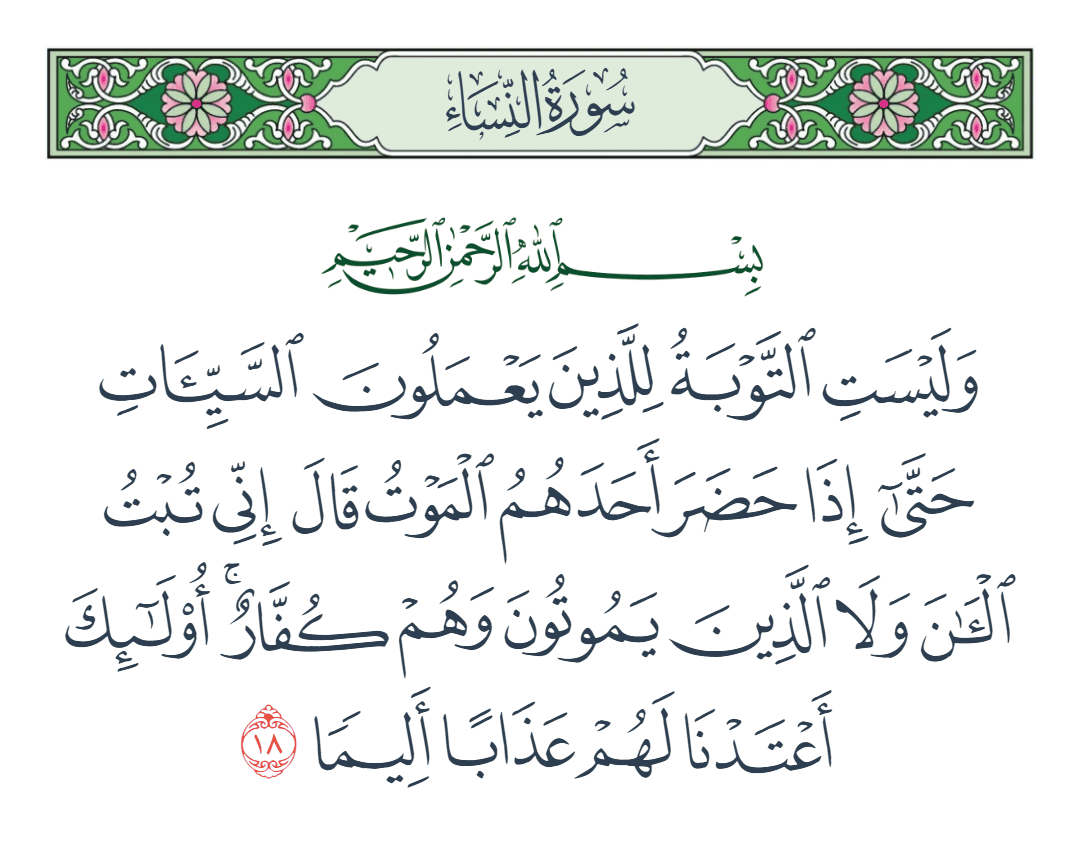 سُورَةُ النِّسَاءِ
بِسْمِ ٱللَّهِ ٱلرَّحْمَٰنِ ٱلرَّحِيمِ
وَلَيْسَتِ ٱلتَّوْبَةُ لِلَّذِينَ يَعْمَلُونَ ٱلسَّيِّـَٔاتِ
حَتَّىٰٓ إِذَا حَضَرَ أَحَدَهُمُ ٱلْمَوْتُ قَالَ إِنِّي تُبْتُ
ٱلْـَٰٔنَ وَلَا ٱلَّذِينَ يَمُوتُونَ وَهُمْ كُفَّارٌ ۚ أُو۟لَـٰٓئِكَ
أَعْتَدْنَا لَهُمْ عَذَابًا أَلِيمًا ١٨